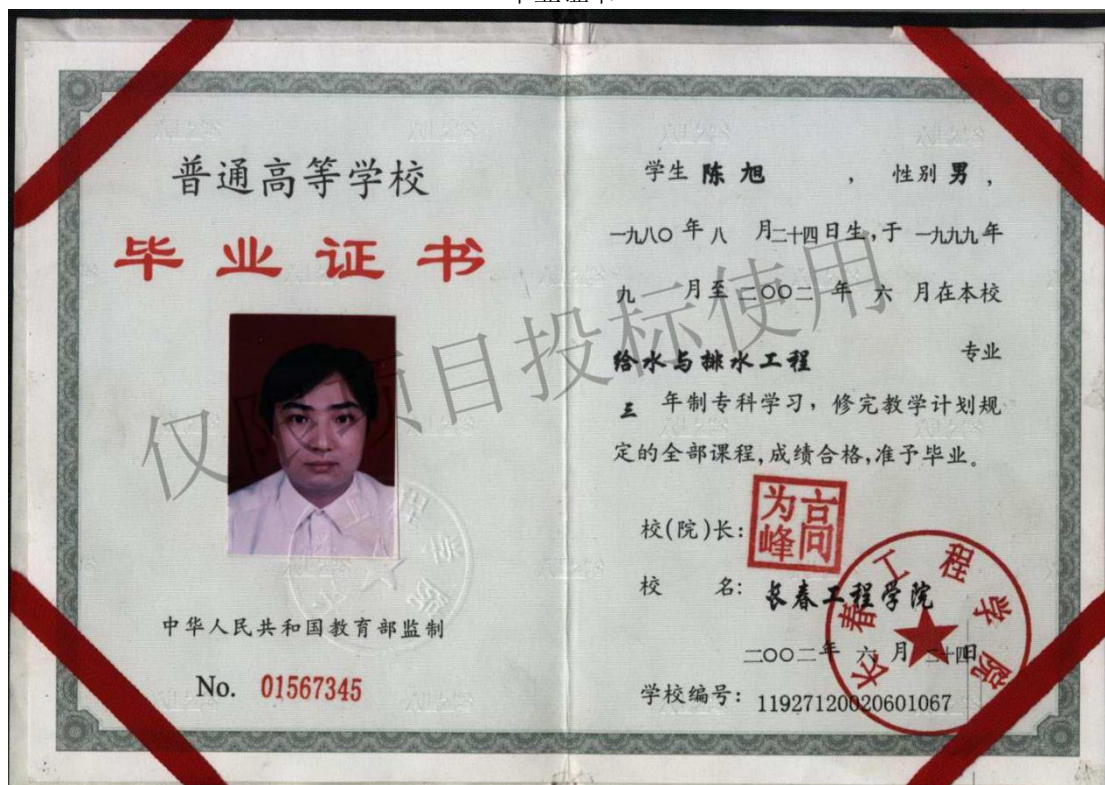 普通高等学校
毕业证书
中华人民共和国教育部监制
No. 01567345
学生 陈旭 , 性别 男,
一九八〇年八 月二十四日生,于 一九九九年
九 月至 二〇〇二 年 六 月在本校
给水与排水工程 专业
三 年制专科学习，修完教学计划规
定的全部课程,成绩合格,准予毕业。
校(院)长:
高为峰
校 名: 长春工程学院
二〇〇二年 六 月二十四日
学校编号: 11927120020601067
长春工程学院
项目投标使用